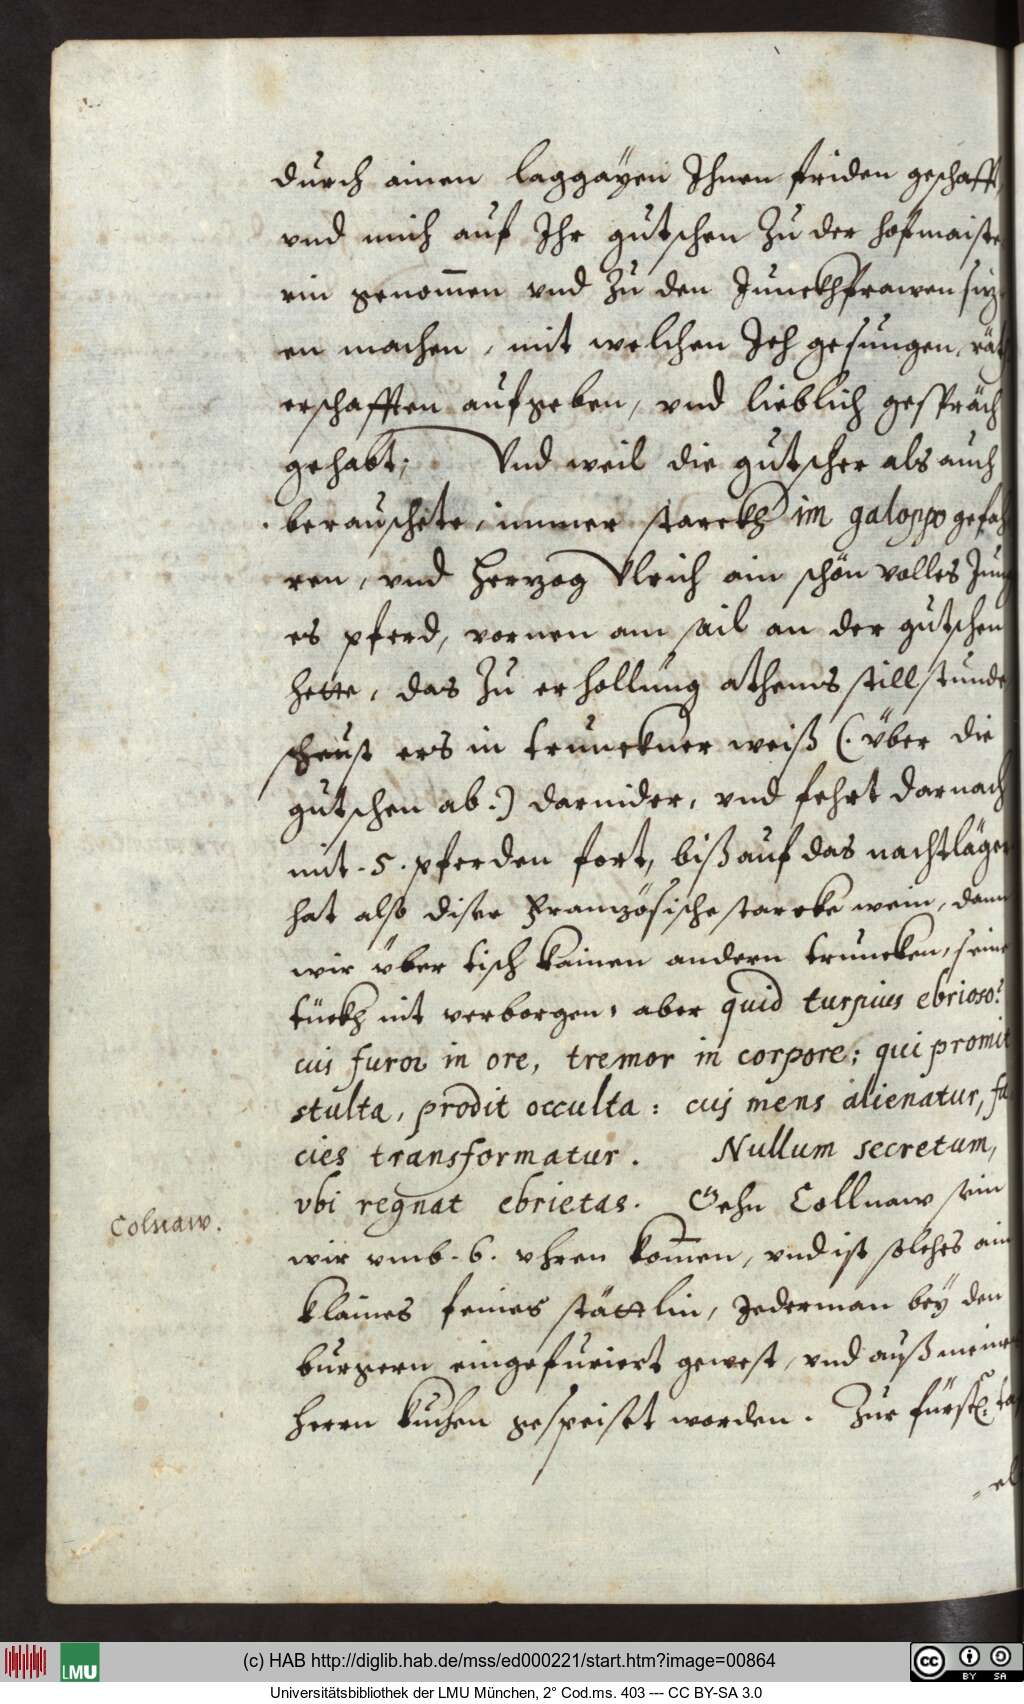 durch ainen laggayen Ihnen friden geschafft,
vnd mich auf Ihr gutschen zu der hofmaiste
rin genom̄en vnd zu den Junckhfrawen siz
en machen, mit welchen Ich gesungen, rät
erschafften aufgeben, vnd lieblich gespräch
gehabt; Vnd weil die gutscher als auch
berauschete, immer starckh im galoppo gefah
ren, vnd Herzog Vlrich ain schön volles Jung
es pferd, vornen am sail an der gutschen
hette, das zu erhollung athems stillstunde
scheust ers in trunckner weiß (. über die
gutschen ab .) darnider, vnd fehrt darnach
mit . 5 . pferden fort, biß auf das nachtläger
hat also diser Französische starcke wein, dann
wir über tisch kainen andern truncken, seine
tückh nit verborgen, aber quid turpius ebrioso?
cui furor in ore, tremor in corpore; qui promit
stulta, prodit occulta : cuj mens alienatur, fa
cies transformatur. Nullum secretum,
vbi regnat ebrietas. Gehn Collnaw sein
Colnaw.
wir vmb . 6 . vhren kom̄en, vnd ist solches ain
klaines feines stättlin, Jederman bey den
burgern eingefuriert gewest, vnd auß meines
herrn kuchen gespeiset worden. Zur fürstl. ta
el
(c) HAB http://diglib.hab.de/mss/ed000221/start.htm?image=00864
LMU
cc BY SA
Universitätsbibliothek der LMU München, 2° Cod.ms. 403 --- CC BY-SA 3.0